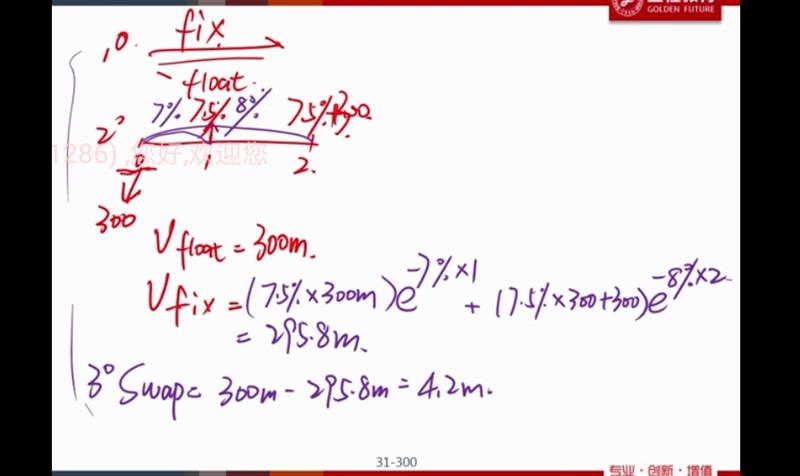 GOLDEN FUTURE
1° fix
float
7% 7.5% 8% 7.5%+300
2°
1286) ,您好,欢迎您
0 1 2.
300
V float = 300m.
V fix = (7.5%×300m)e^-7%×1 + (7.5%×300+300)e^-8%×2
= 295.8m.
3° Swap= 300m - 295.8m = 4.2m.
31-300
专业·创新·增值